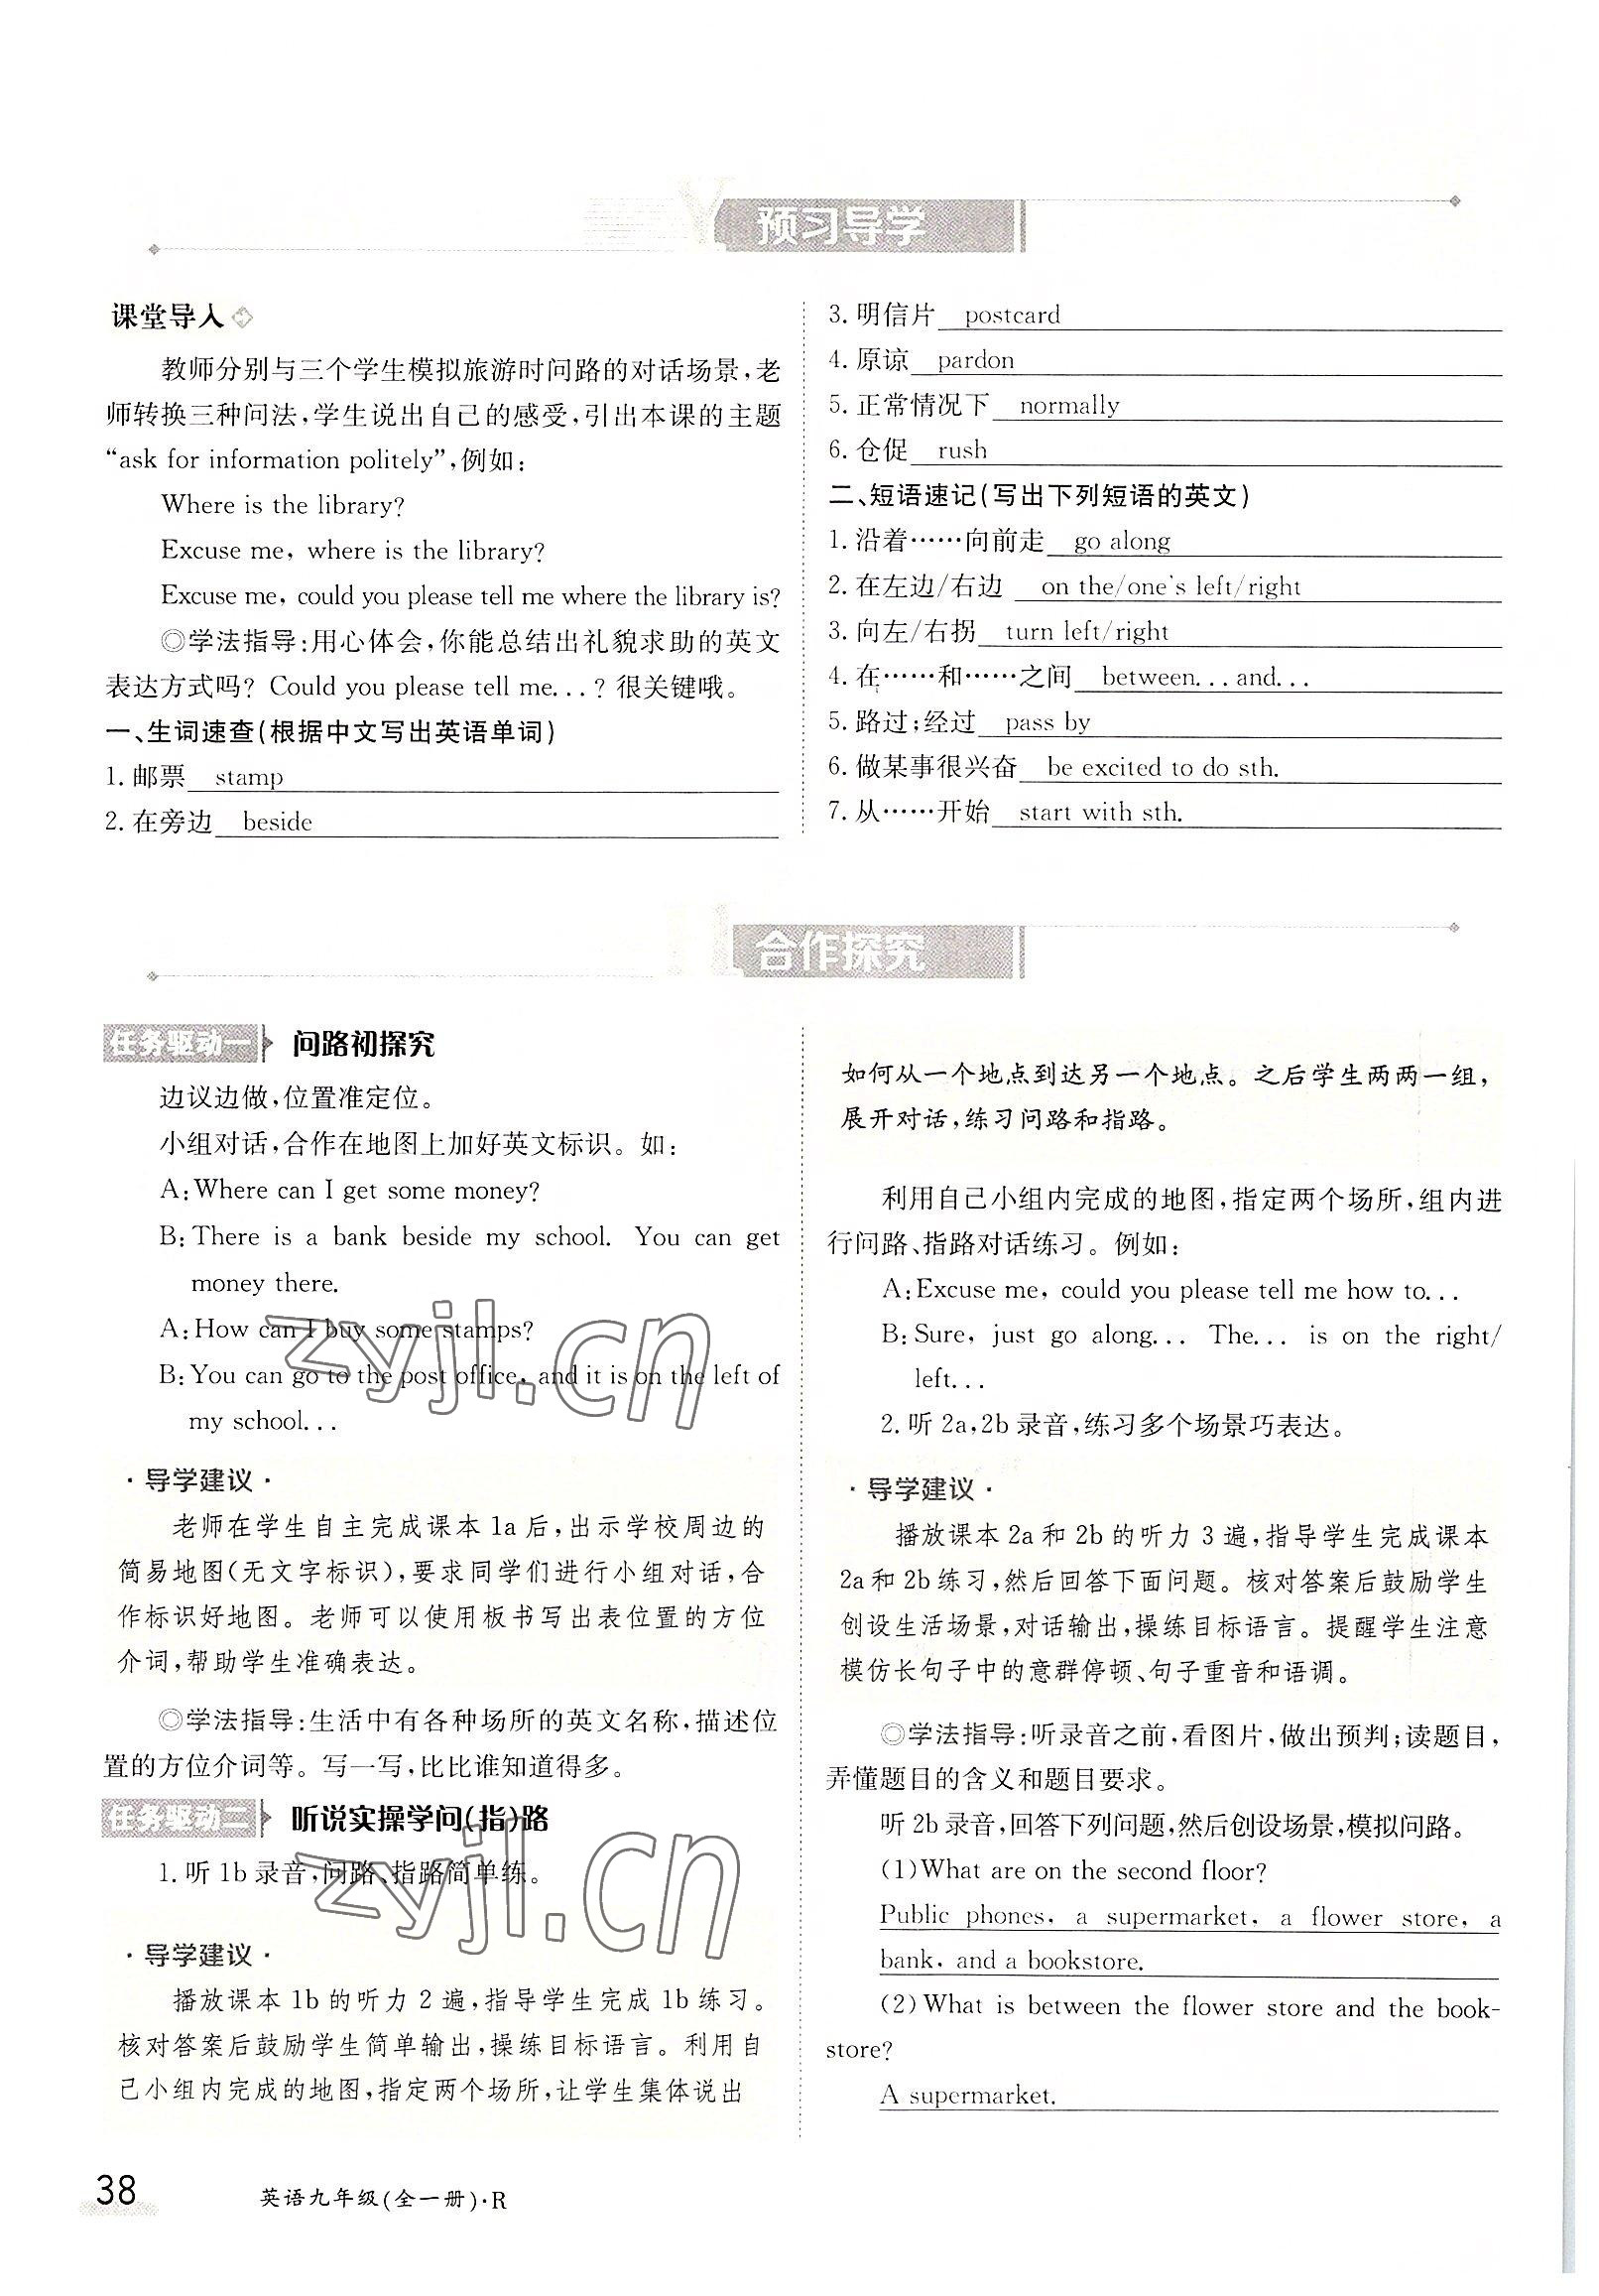 预习导学
课堂导入
教师分别与三个学生模拟旅游时问路的对话场景,老
师转换三种问法,学生说出自己的感受,引出本课的主题
“ask for information politely”,例如:
Where is the library?
Excuse me, where is the library?
Excuse me, could you please tell me where the library is?
◎学法指导:用心体会,你能总结出礼貌求助的英文
表达方式吗? Could you please tell me...? 很关键哦。
一、生词速查(根据中文写出英语单词)
1. 邮票 stamp
2. 在旁边 beside
3. 明信片 postcard
4. 原谅 pardon
5. 正常情况下 normally
6. 仓促 rush
二、短语速记(写出下列短语的英文)
1. 沿着……向前走 go along
2. 在左边/右边 on the/one's left/right
3. 向左/右拐 turn left/right
4. 在……和……之间 between...and...
5. 路过;经过 pass by
6. 做某事很兴奋 be excited to do sth.
7. 从……开始 start with sth.
合作探究
任务驱动一 问路初探究
边议边做,位置准定位。
小组对话,合作在地图上加好英文标识。如:
A:Where can I get some money?
B:There is a bank beside my school. You can get
money there.
A:How can I buy some stamps?
B:You can go to the post office, and it is on the left of
my school...
·导学建议·
老师在学生自主完成课本 1a 后,出示学校周边的
简易地图(无文字标识),要求同学们进行小组对话,合
作标识好地图。老师可以使用板书写出表位置的方位
介词,帮助学生准确表达。
◎学法指导:生活中有各种场所的英文名称,描述位
置的方位介词等。写一写,比比谁知道得多。
任务驱动二 听说实操学问(指)路
1. 听 1b 录音,问路、指路简单练。
·导学建议·
播放课本 1b 的听力 2 遍,指导学生完成 1b 练习。
核对答案后鼓励学生简单输出,操练目标语言。利用自
己小组内完成的地图,指定两个场所,让学生集体说出
如何从一个地点到达另一个地点。之后学生两两一组,
展开对话,练习问路和指路。
利用自己小组内完成的地图,指定两个场所,组内进
行问路、指路对话练习。例如:
A:Excuse me, could you please tell me how to...
B:Sure, just go along... The... is on the right/
left...
2. 听 2a,2b 录音,练习多个场景巧表达。
·导学建议·
播放课本 2a 和 2b 的听力 3 遍,指导学生完成课本
2a 和 2b 练习,然后回答下面问题。核对答案后鼓励学生
创设生活场景,对话输出,操练目标语言。提醒学生注意
模仿长句子中的意群停顿、句子重音和语调。
◎学法指导:听录音之前,看图片,做出预判;读题目,
弄懂题目的含义和题目要求。
听 2b 录音,回答下列问题,然后创设场景,模拟问路。
(1)What are on the second floor?
Public phones, a supermarket, a flower store, a
bank, and a bookstore.
(2)What is between the flower store and the book-
store?
A supermarket.
zyjl.cn
zyjl.cn
38
英语九年级(全一册)·R